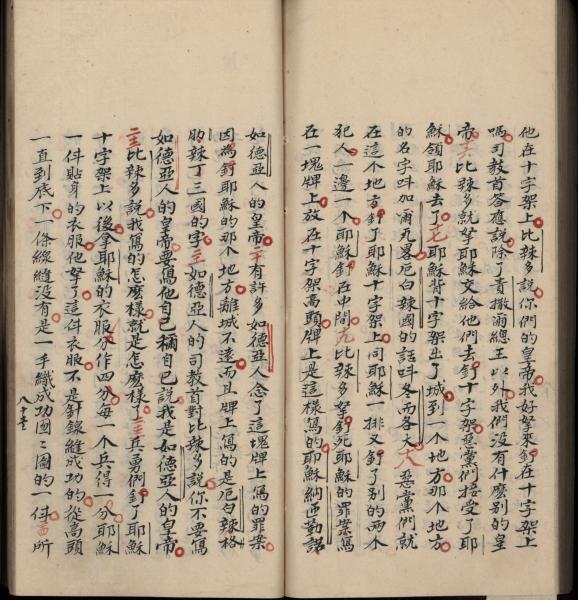 他在十字架上比辣多說你們的皇帝我好拏來釘在十字架上
嗎司教首答應說除了責撒爾總王以外我們沒有什麽別的皇
帝十六比辣多就拏耶穌交給他們去釘十字架惡黨們接受了耶
穌領耶穌去了十七耶穌背十字架出了城到一个地方那个地方
的名字呌加爾瓦畧厄白辣國的話呌各大十八惡黨們就
在這个地方釘了耶穌十字架上同耶穌一排又釘了别的两个
犯人一邊一个耶穌釘在中間十九比辣多拏釘死耶穌的罪案寫
在一塊牌上放在十字架高頭牌上是這樣寫的耶穌納匝勒諾
如德亞人的皇帝二十有許多如德亞人念了這塊牌上寫的罪案
因為釘耶穌的那个地方離城不遠而且牌上寫的是厄白辣格
肋辣丁三國的字二一如德亞人的司教首對比辣多說你不要寫
如德亞人的皇帝要寫他自己稱自己說我是如德亞人的皇帝
二二比辣多說我寫的怎麽樣就是怎麽樣了二三兵勇們釘了耶穌
十字架上以後拿耶穌的衣服分作四分每一个兵得一分耶穌
一件貼身的衣服他拏了這件衣服不是針線縫成功的從高頭
一直到底下一條線縫沒有是一手織成功圓圓的一件二四所